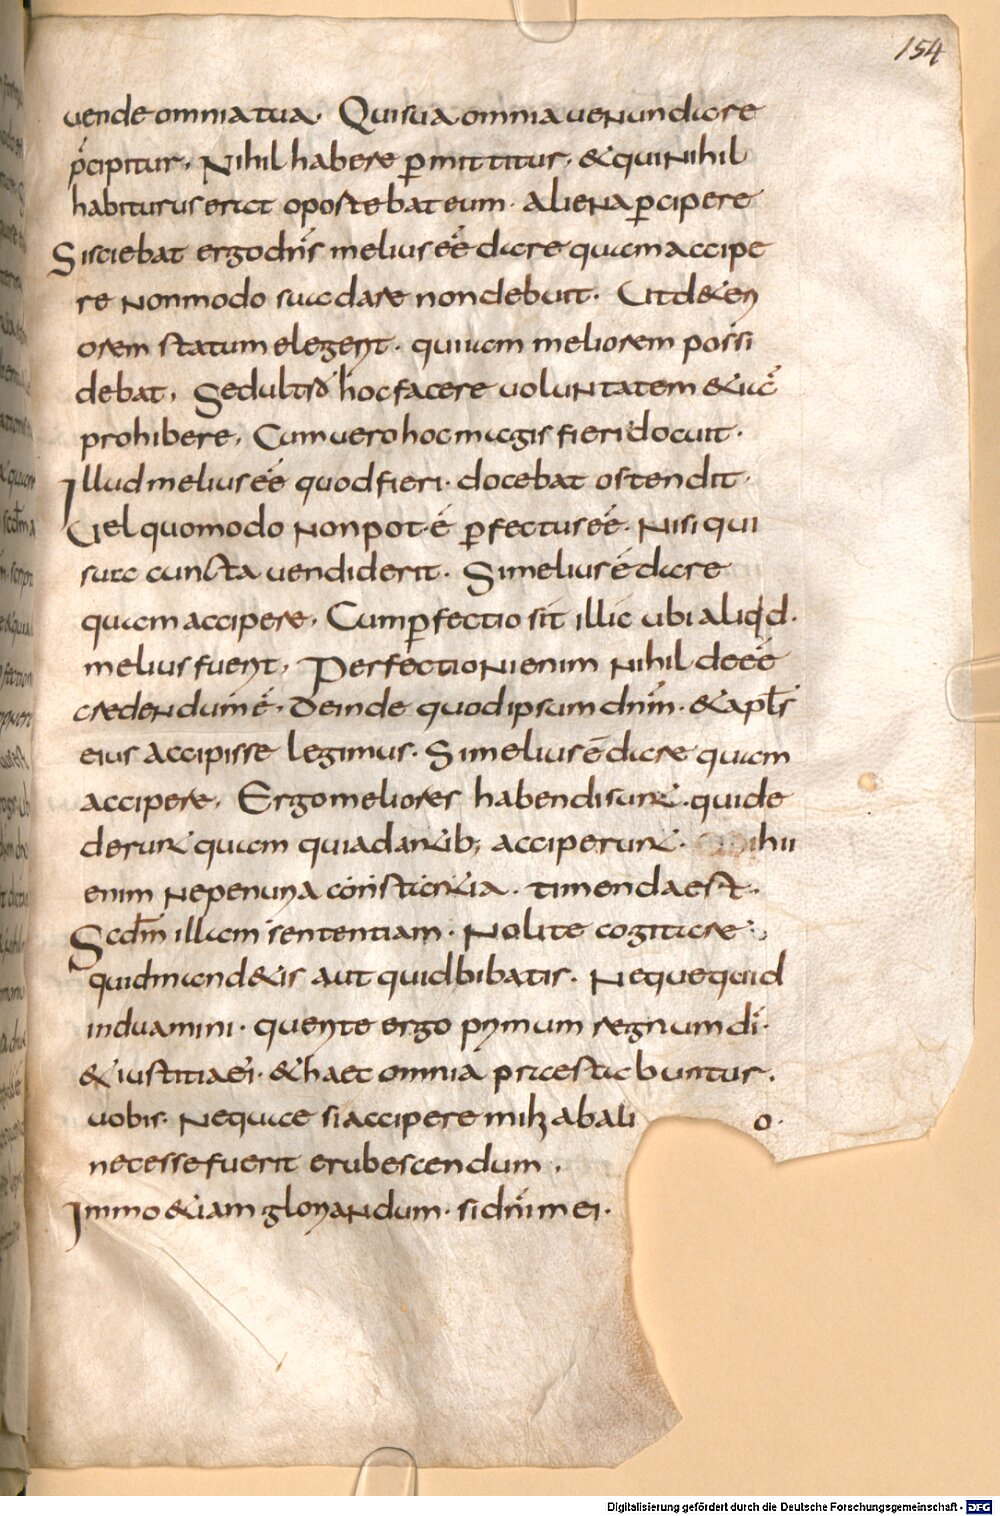 154
uende omnia tua. Qui sua omnia uenundare
p̄cipitur. Nihil habere ꝑmittitur. & qui nihil
habiturus erat oportebat eum. aliena ꝑcipere
Si sciebat ergo dn̄s melius eē dare quam accipe
re non modo sua dare non debuit. Ut det&eri
orem statum elegerit. qui iam meliorem possi
debat. Sed ultro hoc facere uoluntatem & iā
prohibere. Cum uero hoc magis fieri docuit.
Illud melius eē quod fieri. docebat ostendit.
Uel quomodo non pot·ē ꝑfectus eē. Nisi qui
sua cuncta uendiderit. Si melius ē dare
quam accipere. Cum ꝑfectio sit illic ubi aliqd.
melius fuerit. Perfectioni enim nihil deeē
credendum ē. deinde quod ipsum dn̄m. & apl̄s
eius accipisse legimus. Si melius ē dare quam
accipere. Ergo meliores habendi sunt. qui de
derunt quam qui a dantib; acciperunt. ihii
enim ne penuria constantia. timenda est.
Scdm̄ illam sententiam. Nolite cogitare.
quid mand&is aut quid bibatis. Neque quid
induamini. querite ergo primum regnum dī.
& iustitia eī. & haec omnia praestabuntur.
uobis. Neque si accipere mihi ab ali o.
necesse fuerit erubescendum.
Immo &iam gloriandum. si dn̄i mei.
Digitalisierung gefördert durch die Deutsche Forschungsgemeinschaft - DFG